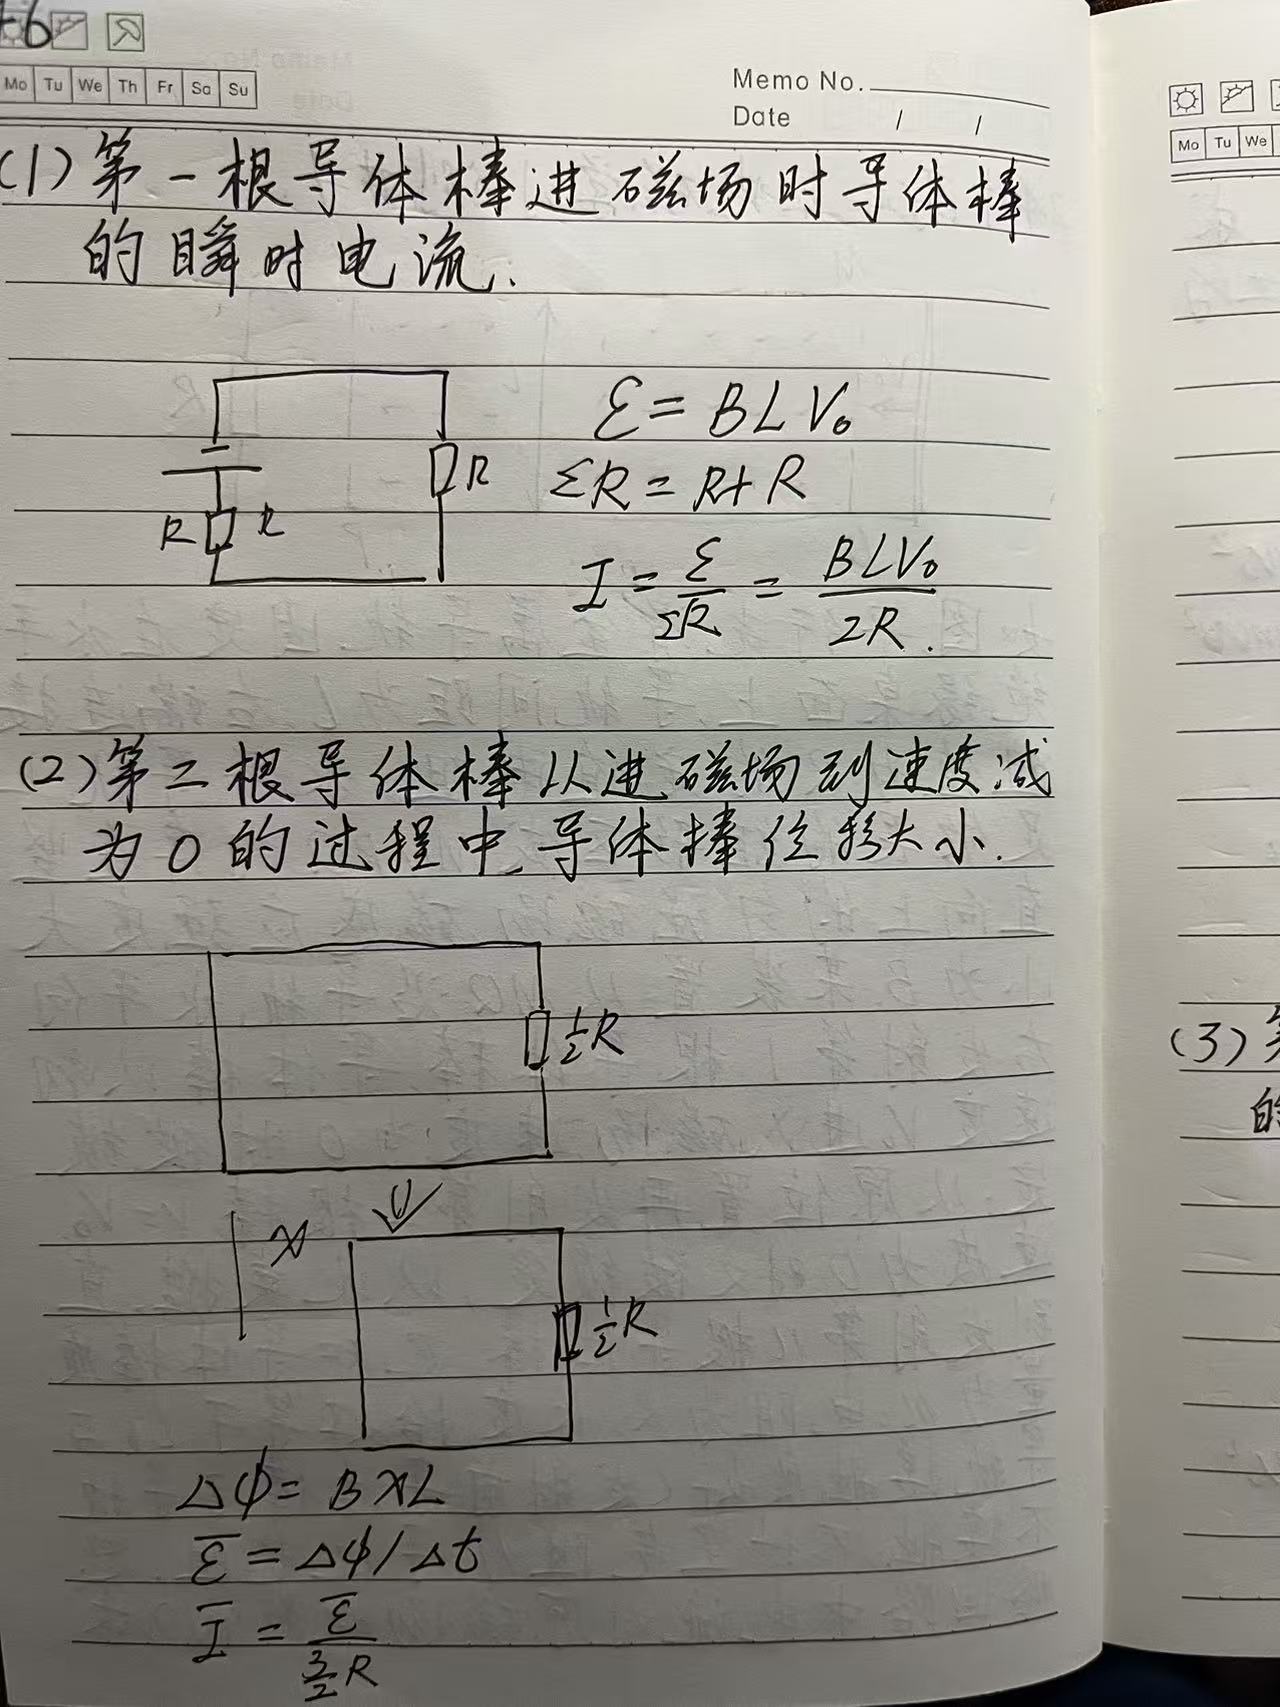 46
Mo Tu We Th Fr Sa Su
Memo No.
Date / /
(1) 第一根导体棒进磁场时导体棒
的瞬时电流.
R
R r
ε = BLV₀
ΣR = R+R
I = ε/ΣR = BLV₀/2R.
(2) 第二根导体棒从进磁场到速度减
为0的过程中,导体棒位移大小.
½R
x
½R
Δφ = BxL
ε̅ = Δφ/Δt
I̅ = ε̅/(3/2)R
Mo Tu We
(3) 第
的